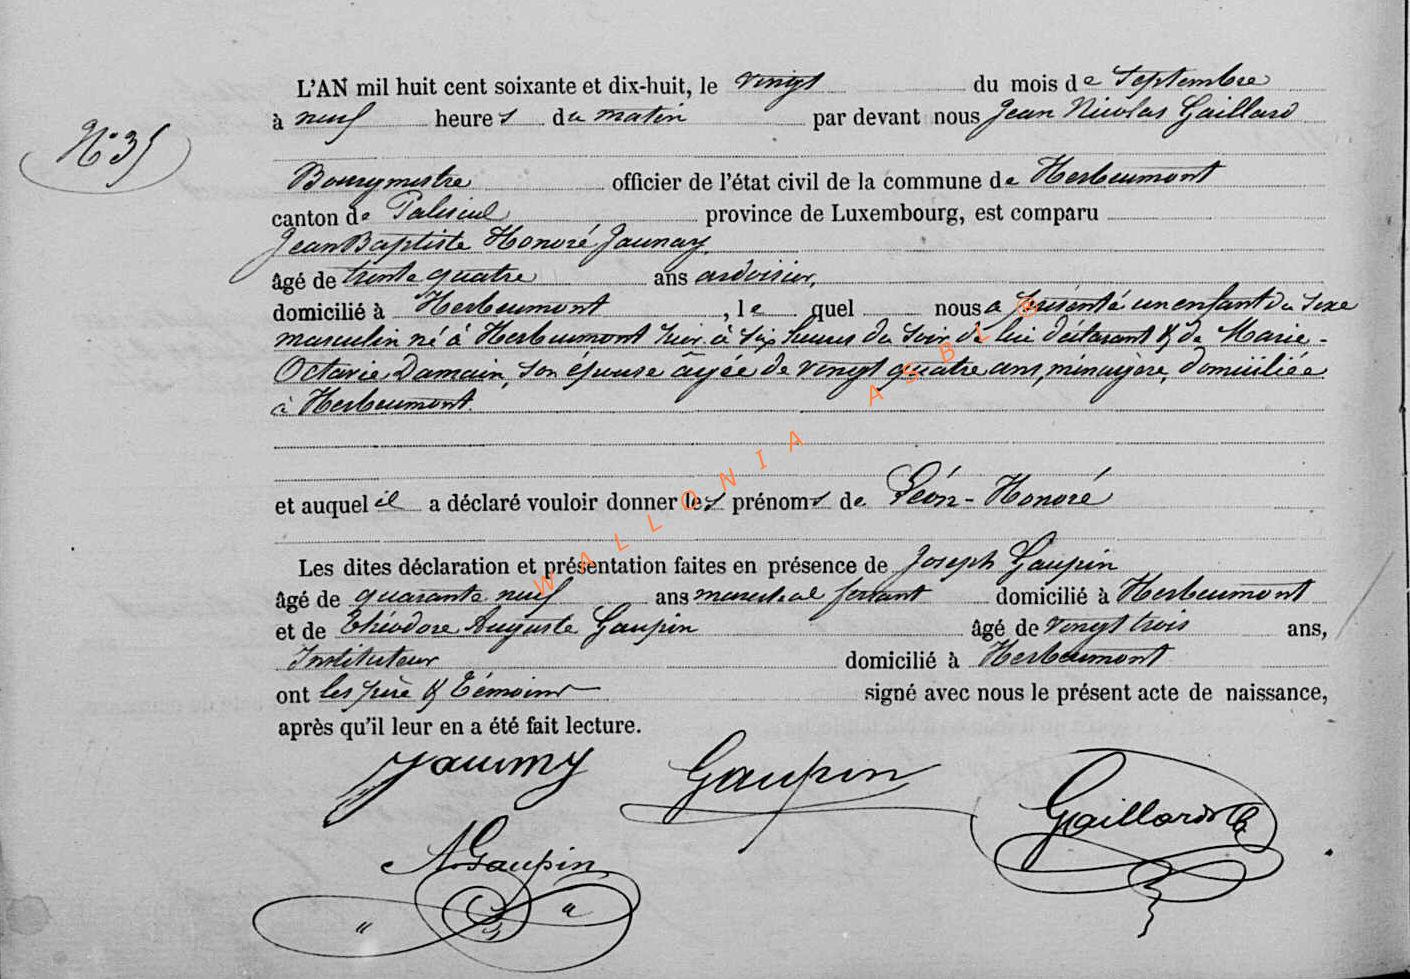 N° 35
L'AN mil huit cent soixante et dix-huit, le vingt du mois de Septembre
à neuf heures du matin par devant nous Jean Nicolas Gaillard
Bourgmestre officier de l'état civil de la commune de Herbeumont
canton de Paliseul province de Luxembourg, est comparu
Jean Baptiste Honoré Jaumay,
âgé de trente quatre ans ardoisier,
domicilié à Herbeumont, le quel nous a présenté un enfant du sexe
masculin né à Herbeumont hier à six heures du soir de lui déclarant & de Marie-
Octavie Damain, son épouse âgée de vingt quatre ans, ménagère, domiciliée
à Herbeumont.
et auquel il a déclaré vouloir donner les prénoms de Léon-Honoré
Les dites déclaration et présentation faites en présence de Joseph Gaupin
âgé de quarante neuf ans marechal ferrant domicilié à Herbeumont
et de Théodore Auguste Gaupin âgé de vingt trois ans,
Instituteur domicilié à Herbeumont
ont les père & témoins signé avec nous le présent acte de naissance,
après qu'il leur en a été fait lecture.
Gaupin Gaillard
A Gaupin
WALLONIA ASBL ©